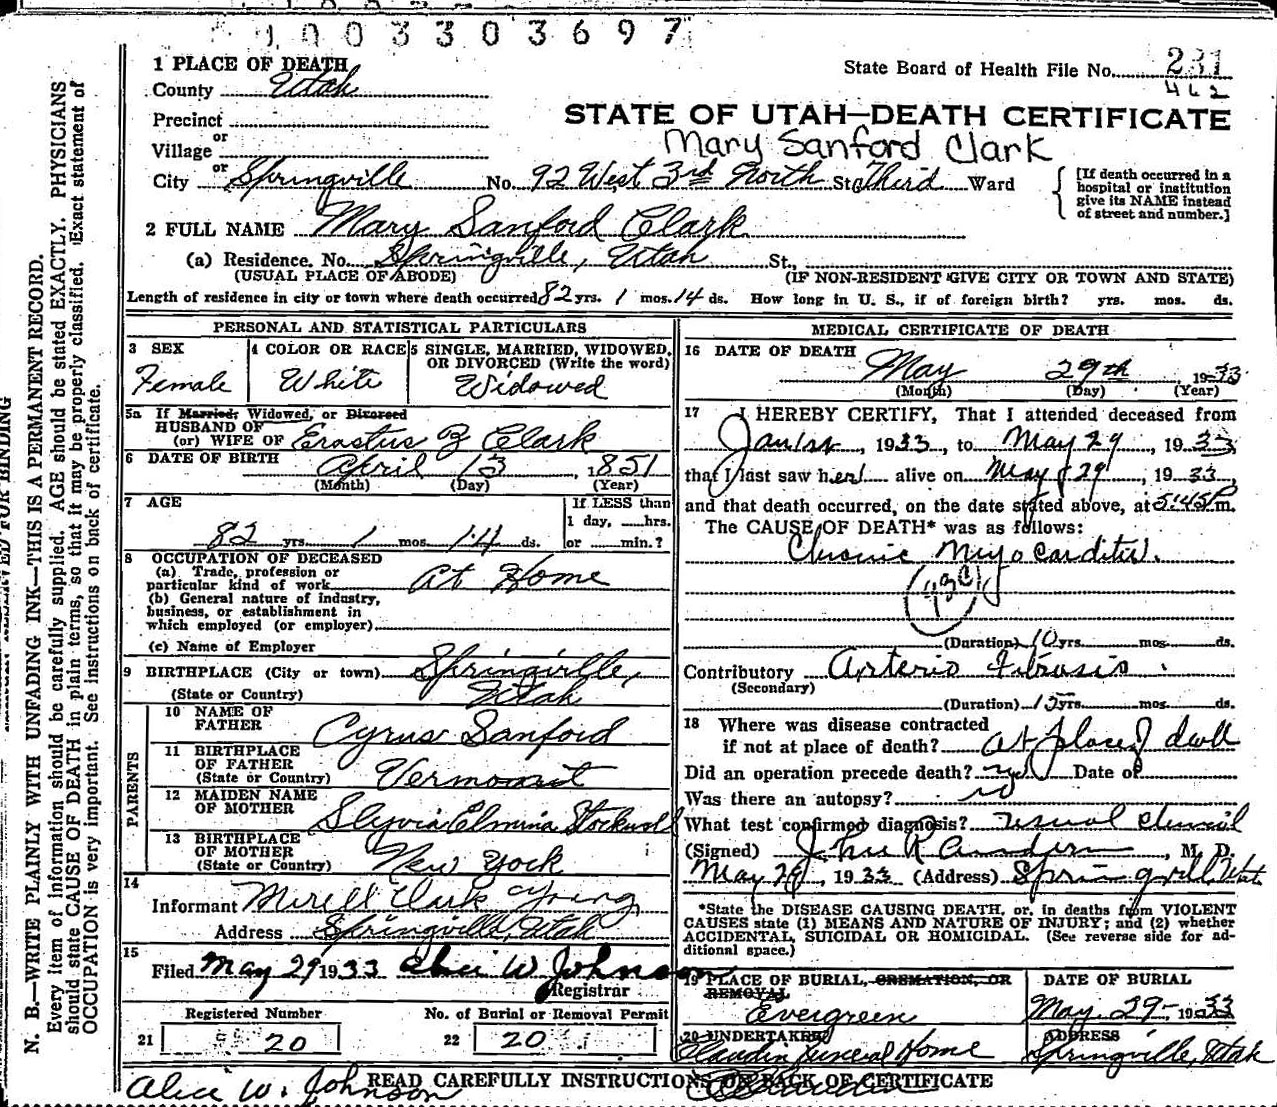 1003303697
1 PLACE OF DEATH
State Board of Health File No. 231
462
County Utah
STATE OF UTAH—DEATH CERTIFICATE
Precinct
or
Mary Sanford Clark
Village
or
City Springville No. 92 West 3rd North St. Third Ward
[If death occurred in a
hospital or institution
give its NAME instead
of street and number.]
2 FULL NAME Mary Sanford Clark
(a) Residence. No. Springville, Utah St.,
(USUAL PLACE OF ABODE) (IF NON-RESIDENT GIVE CITY OR TOWN AND STATE)
Length of residence in city or town where death occurred 82 yrs. 1 mos. 14 ds. How long in U. S., if of foreign birth? yrs. mos. ds.
PERSONAL AND STATISTICAL PARTICULARS
3 SEX
Female
4 COLOR OR RACE
White
5 SINGLE, MARRIED, WIDOWED,
OR DIVORCED (Write the word)
Widowed
5a If Married, Widowed, or Divorced
HUSBAND OF
(or) WIFE OF Erastus Clark
6 DATE OF BIRTH April 13, 1851
(Month) (Day) (Year)
7 AGE
If LESS than
1 day, hrs.
82 yrs. 1 mos. 14 ds. or min.?
8 OCCUPATION OF DECEASED
(a) Trade, profession or
particular kind of work At Home
(b) General nature of industry,
business, or establishment in
which employed (or employer)
(c) Name of Employer
9 BIRTHPLACE (City or town) Springville,
(State or Country) Utah
PARENTS
10 NAME OF
FATHER Cyrus Sanford
11 BIRTHPLACE
OF FATHER
(State or Country) Vermont
12 MAIDEN NAME
OF MOTHER Slyvia Elmina Stockwell
13 BIRTHPLACE
OF MOTHER
(State or Country) New York
14
Informant Merell Clark Young
Address Springville, Utah
15
Filed May 29 1933 Alice W. Johnson
Registrar
Registered Number No. of Burial or Removal Permit
21 20 22 20
MEDICAL CERTIFICATE OF DEATH
16 DATE OF DEATH
May 29th 1933
(Month) (Day) (Year)
17 I HEREBY CERTIFY, That I attended deceased from
Jan 1st, 1933, to May 29, 1933,
that I last saw her alive on May 29, 1933,
and that death occurred, on the date stated above, at 5:45 P. m.
The CAUSE OF DEATH* was as follows:
Chronic Myocarditis.
(Duration) 10 yrs. mos. ds.
Contributory Arterio Fibrosis.
(Secondary)
(Duration) 15 yrs. mos. ds.
18 Where was disease contracted
if not at place of death? at place of death
Did an operation precede death? no Date of
Was there an autopsy? no
What test confirmed diagnosis? usual clinical
(Signed) John R Anderson, M. D.
May 29, 1933 (Address) Springville, Utah
*State the DISEASE CAUSING DEATH, or, in deaths from VIOLENT
CAUSES state (1) MEANS AND NATURE OF INJURY; and (2) whether
ACCIDENTAL, SUICIDAL OR HOMICIDAL. (See reverse side for ad-
ditional space.)
19 PLACE OF BURIAL, CREMATION, OR
REMOVAL
Evergreen
DATE OF BURIAL
May 29- 1933
20 UNDERTAKER
Claudin Funeral Home
ADDRESS
Springville, Utah
READ CAREFULLY INSTRUCTIONS ON BACK OF CERTIFICATE
Alice W. Johnson
N. B.—WRITE PLAINLY WITH UNFADING INK—THIS IS A PERMANENT RECORD.
Every item of information should be carefully supplied. AGE should be stated EXACTLY. PHYSICIANS
should state CAUSE OF DEATH in plain terms, so that it may be properly classified. Exact statement of
OCCUPATION is very important. See instructions on back of certificate.